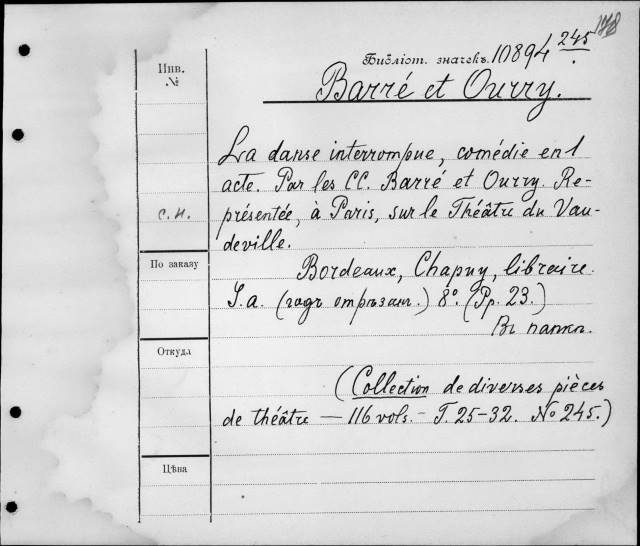 178
Библіот. значекъ. 10894 245
Инв.
№
Barré et Ourry.
La danse interrompue, comédie en 1
acte. Par les CC. Barré et Ourry. Re-
с. н.
présentée, à Paris, sur le Théâtre du Vau-
deville.
По заказу
Bordeaux, Chapuy, libraire.
S.a. (годъ отрѣзан.) 8º. (Pp. 23.)
Въ папкѣ.
Откуда
(Collection de diverses pièces
de théâtre — 116 vols. - T. 25-32. № 245.)
Цѣна